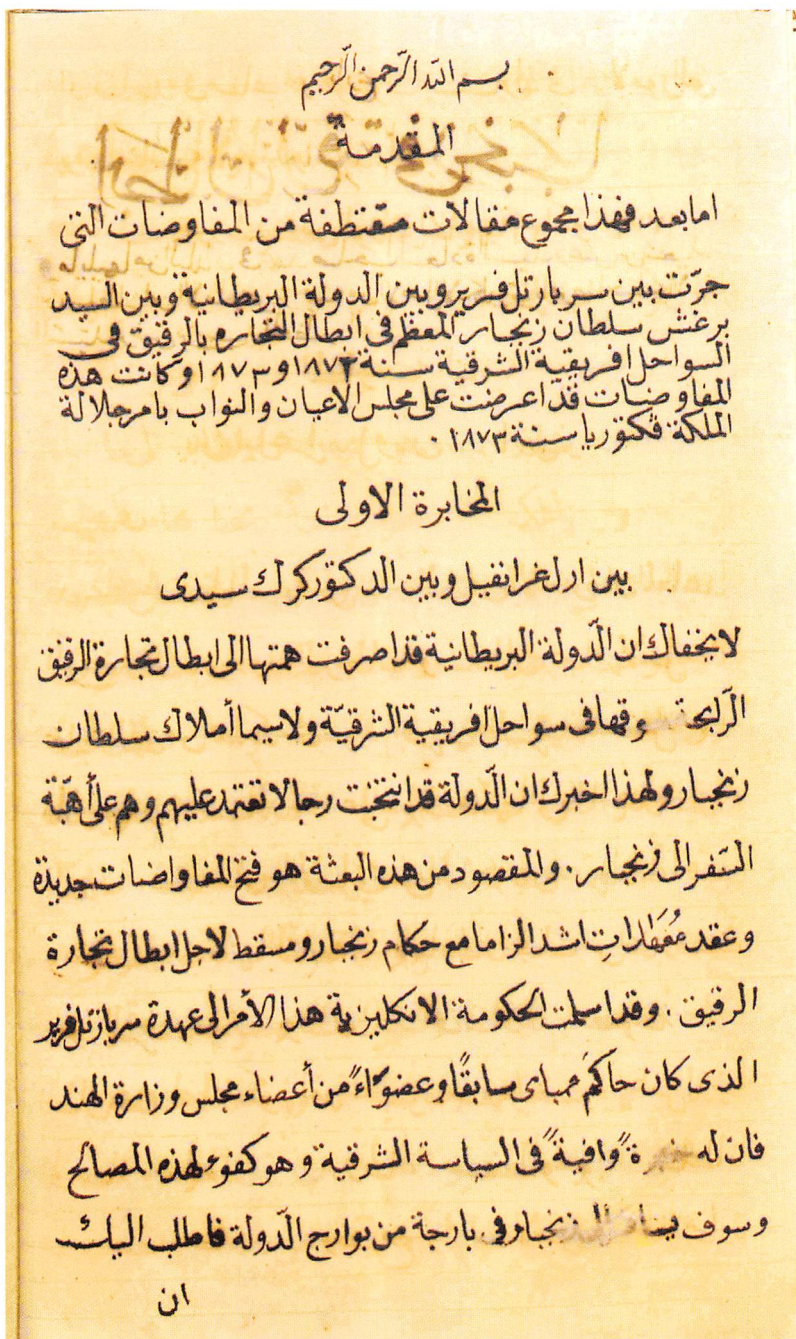 بسم الله الرّحمن الرّحيم
المقدمة
اما بعد فهذا مجموع مقالات مقتطفة من المفاوضات التى
جرّت بين سر بارتل فرير وبين الدولة البريطانية وبين السيد
برغش سلطان زنجبار المعظم فى ابطال التجاره بالرقيق فى
السواحل افريقية الشرقية سنة ١٨٧٢ و١٨٧٣ وكانت هذه
المفاوضات قد اعرضت على مجلس الاعيان والنواب بامر جلالة
الملكة ڤكتوريا سنة ١٨٧٣.
المخابرة الاولى
بين ارل غرانفيل وبين الدكتور كرك سيدى
لا يخفاك ان الّدولة البريطانية قد اصرفت همتها الى ابطال تجارة الرقيق
الرّابحة سوقها فى سواحل افريقية الشرقيّة ولا سيما أملاك سلطان
زنجبار ولهذا اخبرك ان الّدولة قد انتخبت رجالا تعتمد عليهم وهم على أهبّة
السّفر الى زنجبار. والمقصود من هذه البعثة هو فتح المفاواضات جديدة
وعقد اشد الزاما مع حكام زنجبار ومسقط لاجل ابطال تجارة
الرقيق. وقد اسلمت الحكومة الانكليزية هذا الأمر الى عهدة سر بارتل فرير
الذى كان حاكمَ ممباى سابقًا وعضواً من أعضاء مجلس وزارة الهند
فان له خبرةً وافيةً فى السياسة الشرقية وهو كفوء لهذه المصالح
وسوف زنجبار فى بارجة من بوارج الّدولة فاطلب اليك
ان